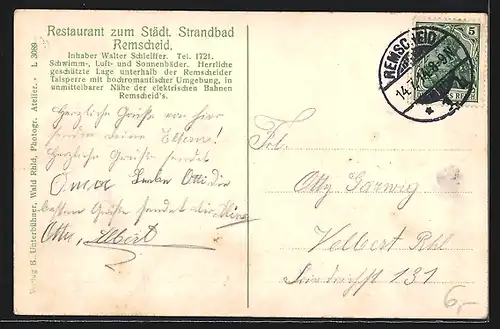 Restaurant zum Städt. Strandbad
Remscheid.
Inhaber Walter Schleiffer. Tel. 1721.
Schwimm-, Luft- und Sonnenbäder. Herrliche
geschützte Lage unterhalb der Remscheider
Talsperre mit hochromantischer Umgebung, in
unmittelbarer Nähe der elektrischen Bahnen
Remscheid's.
Herzliche Grüße von hier
senden deine Eltern!
Herzliche Grüße sendet
Oma Liebe Otti die
besten Grüße sendet
Otto, Albert
Verlag E. Unterbühner, Wald Rhld, Photogr. Atelier. L 3089
REMSCHEID
5
Frl.
Otty Garwig
Velbert Rhl
Friedrichst 131
6,-